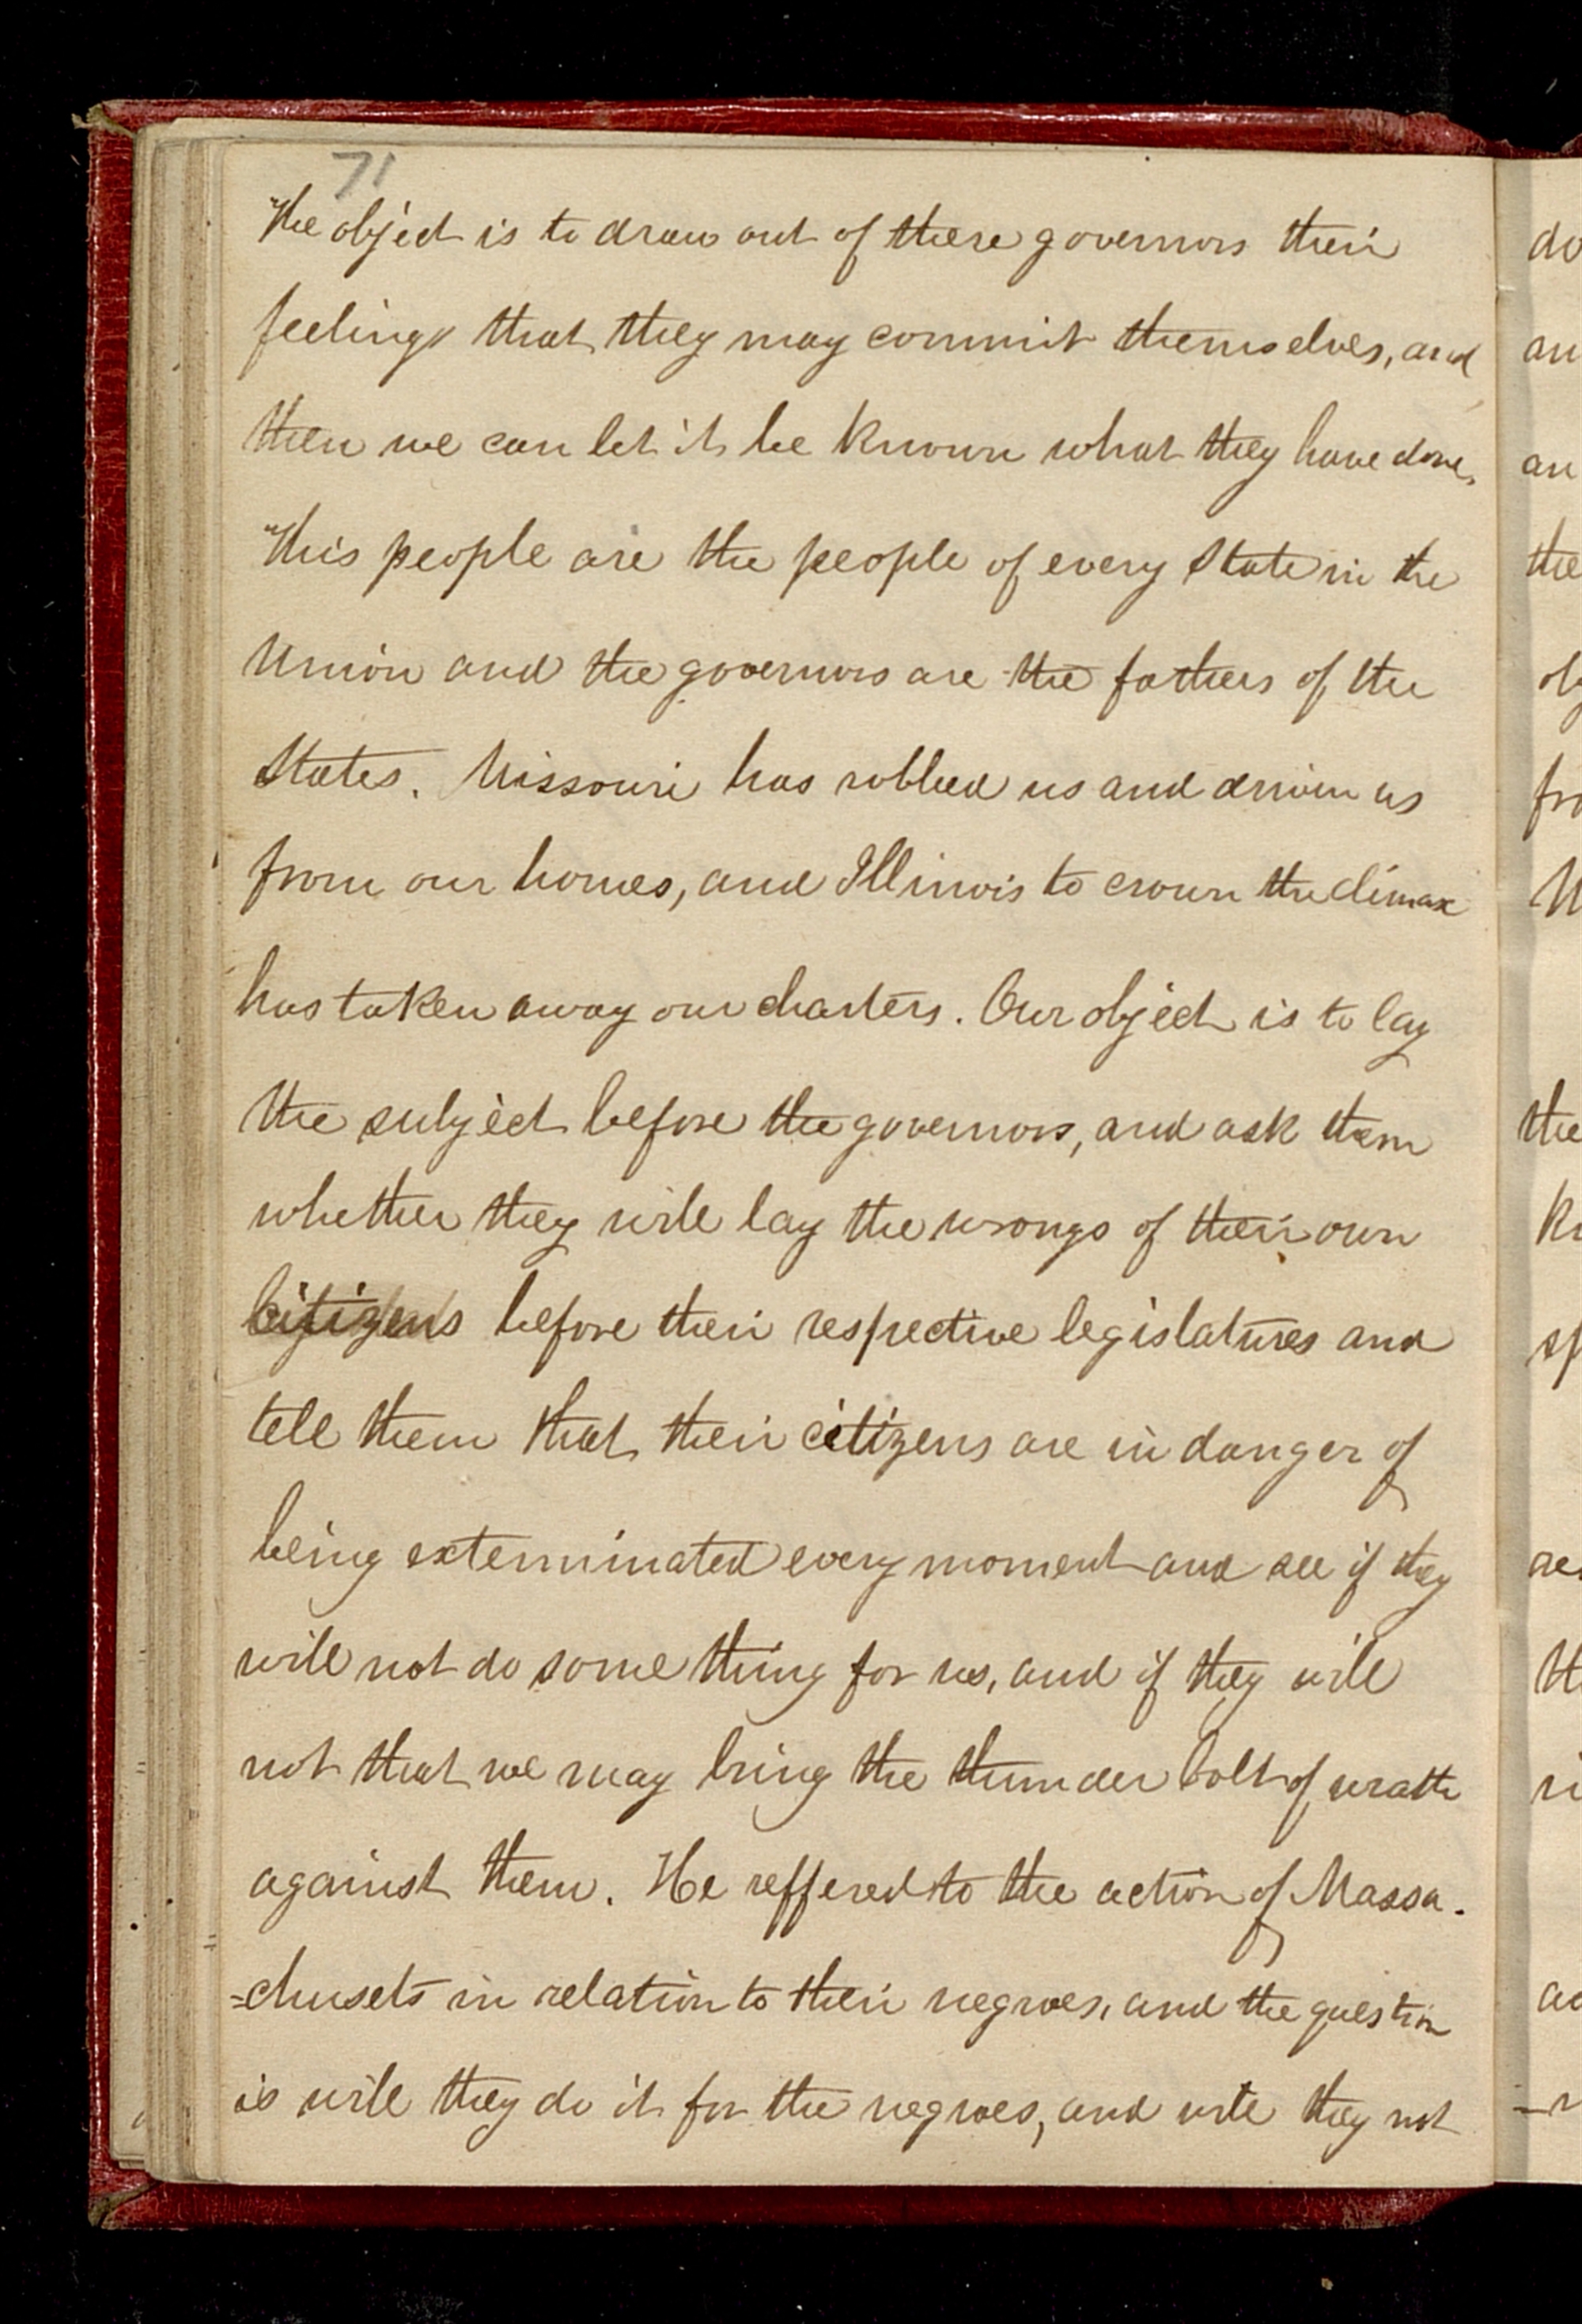 71
The object is to draw out of these governors their
feelings that they may commit themselves, and
then we can let it be known what they have done,
This people are the people of every State in the
Union and the governors are the fathers of the
States. Missouri has robbed us and driven us
from our homes, and Illinois to crown the climax
has taken away our charters. Our object is to lay
the subject before the governors, and ask them
whether they will lay the wrongs of their own
citizens before their respective legislatures and
tell them that their citizens are in danger of
being exterminated every moment and see if they
will not do some thing for us, and if they will
not that we may bring the thunder bolt of wrath
against them. He reffered to the action of Massa-
=chusets in relation to their negroes, and the question
is will they do it for the negroes, and will they not